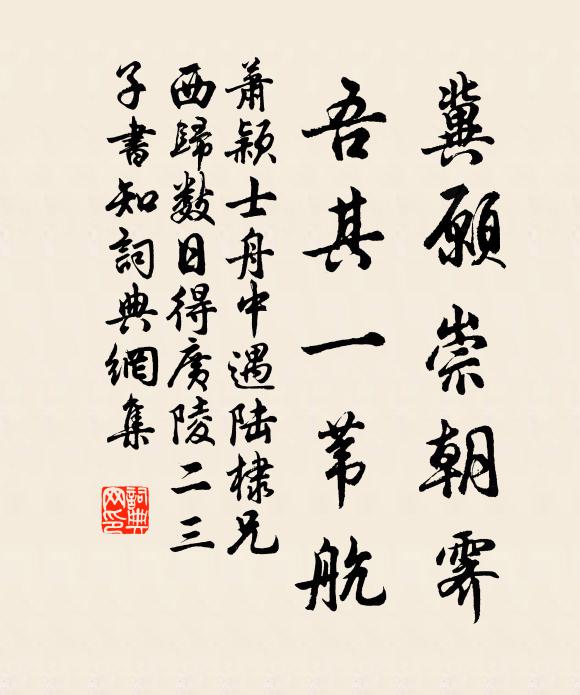 冀願崇朝霽
吾其一苇航
蕭颖士舟中遇陆棣兄
西歸数日得廣陵二三
子書知詞典網集
詞典
网印